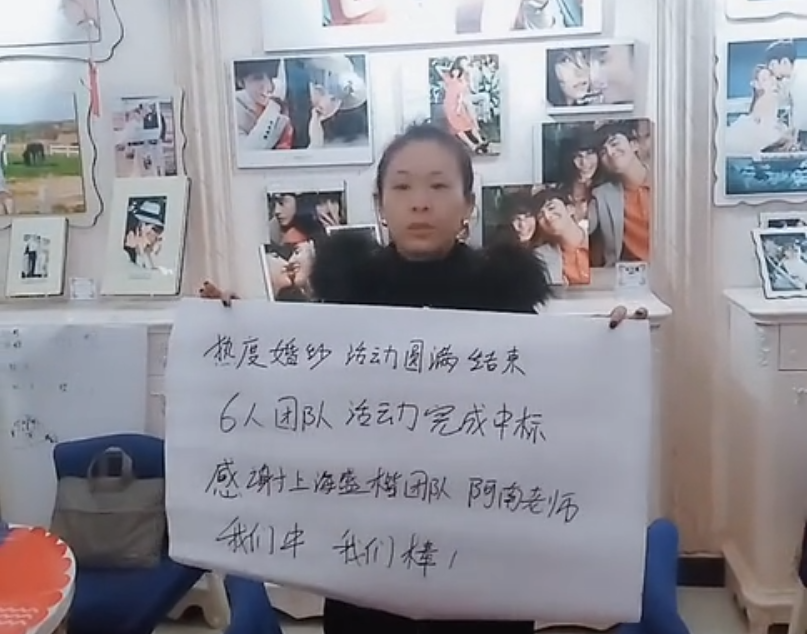 热度婚纱 活动圆满结束
6人团队 活动完成中标
感谢上海盛楷团队 阿南老师
我们牛 我们棒！